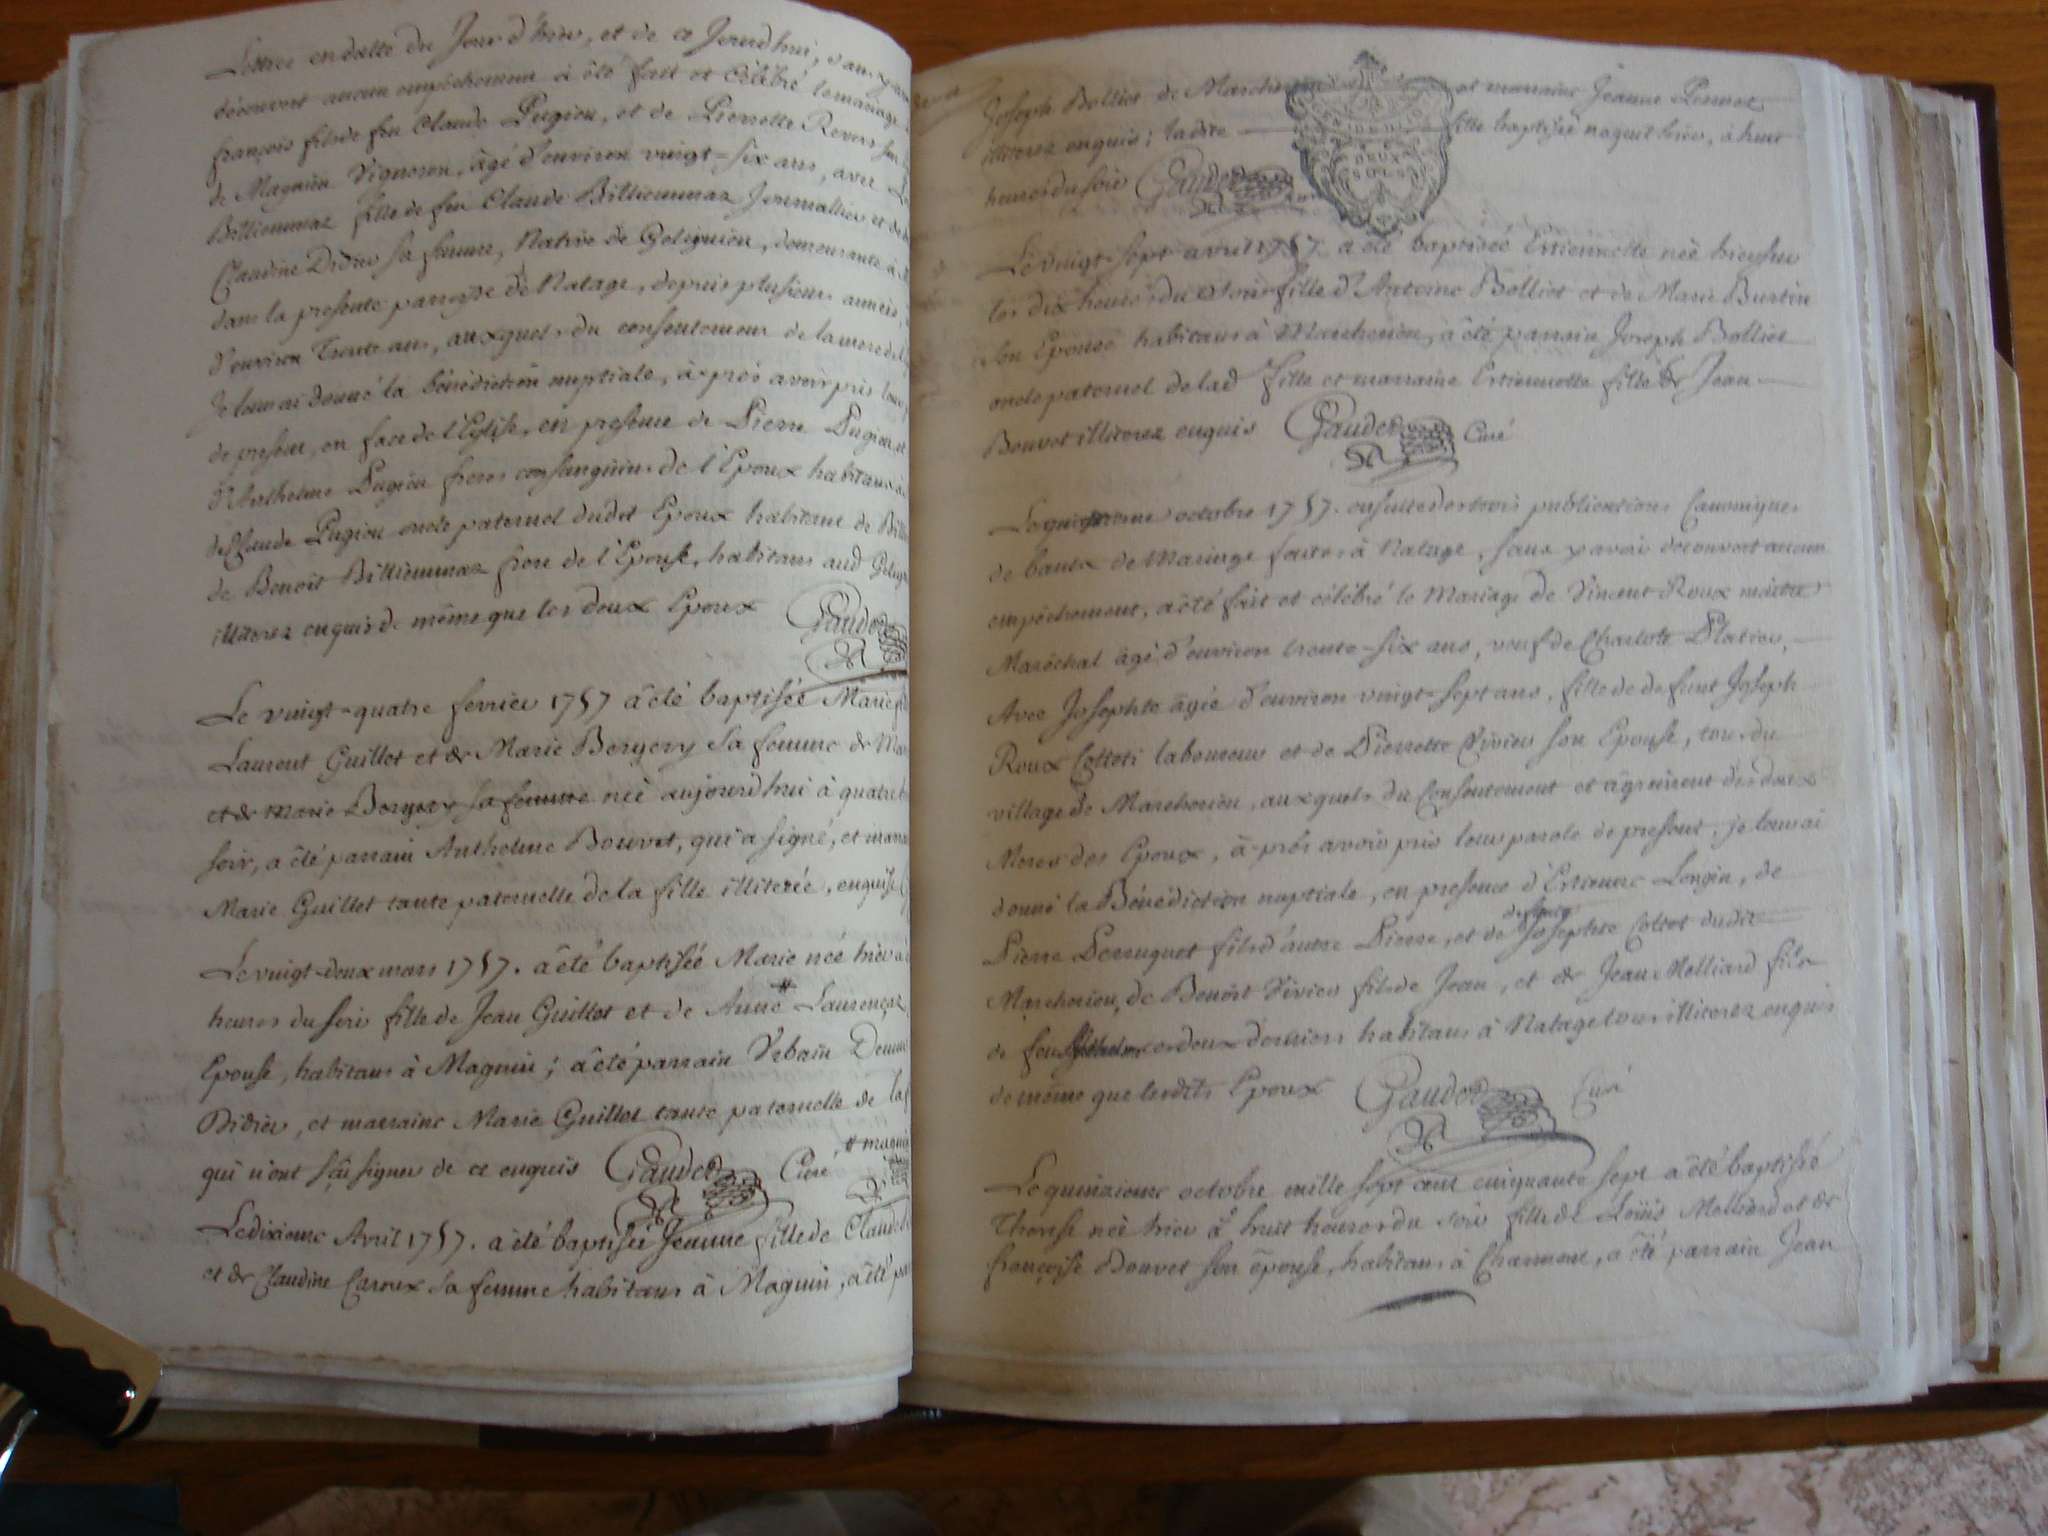 Lettres en datte du Jour d'hier, et de ce Jourdhui, sans y avoir
découvert aucun empêchement à été fait et célébré le mariage
françois fils de feu Claude Pugieu, et de Pierrette Revers
de Magnieu Vigneron, âgé d'environ vingt-six ans, avec
Billiemmaz fille de feu Claude Billiemmaz Journallier et de
Claudine Didier sa femme, Native de Geligniеu, demeurante à
dans la presente parroisse de Natage, depuis plusieurs années,
d'environ Trente ans, auxquels du consentement de la mere de
Je leur ai donné la bénédiction nuptiale, à-près avoir pris leur
de present, en face de l'Eglise, en presence de Pierre Pugieu et
d'Anthelme Pugieu freres consanguins de l'Epoux habitans
de Claude Pugieu oncle paternel dudit Epoux habitant de
de Benoît Billiemmaz frere de l'Epouse, habitans aud
illiterez enquis de même que les deux Epoux Gaudet
Le vingt-quatre fevrier 1757 a été baptisée Marie
Laurent Guillot et de Marie Borgery sa femme de
et de Marie Borgery sa femme née aujourd'hui à quatre
soir, a été parrain Anthelme Bouvet, qui a signé, et
Marie Guillot tante paternelle de la fille illiterée, enquise
Le vingt-deux mars 1757. a été baptisée Marie née hier à
heures du soir fille de Jean Guillot et de Anne # Laurençaz
Epouse, habitans à Magnin; a été parrain Urbain
Didier, et marraine Marie Guillot tante paternelle de la
qui n'ont sçû signer de ce enquis Gaudet Curé
Le dixieme Avril 1757. a été baptisée Jeanne fille de Claude
et de Claudine Caroux sa femme habitans à Magnin, a été
Joseph Bolliet de et marraine Jeanne
illiterez enquis; ladite fille baptisée naquit hier, à huit
heures du soir Gaudet
DEUX
SOLS
Le vingt-sept avril 1757. a été baptisée Estiennette née hier sur
les dix heures du soir fille d'Antoine Bolliet et de Marie Burtin
son Epouse habitans à Marchouien, a été parrain Joseph Bolliet
oncle paternel de lad fille et marraine Estiennette fille de Jean
Bouvet illiterez enquis Gaudet Curé
Le octobre 1757. ensuite des trois publications Canoniques
de bancs de Mariage faites à Natage, sans y avoir découvert aucun
empêchement, a été fait et célébré le Mariage de Vincent Roux maître
Maréchal âgé d'environ trente-six ans, veuf de Charlote Platier,
Avec Josephte âgée d'environ vingt-sept ans, fille de defunt Joseph
Roux Collet laboureur et de Pierrette Vivier son Epouse, tous du
village de Marchouien, auxquels du Consentement et agrément des deux
Meres des Epoux, à-près avoir pris leur parole de present, je leur ai
donné la Bénédiction nuptiale, en presence d'Estienne Longin, de
Pierre fils d'autre Pierre, et de Josephte Collet dudit
Marchouien, de Benoît Vivier fils de Jean, et de Jean Molliard fils
de feu ces deux derniers habitans à Natage tous illiterez enquis
de même que lesdits Epoux Gaudet Curé
Le quinzieme octobre mille sept cent cinquante sept a été baptisée
Therese née hier à huit heures du soir fille de Loüis Molliard et de
françoise Bouvet son épouse, habitans à Charmont, a été parrain Jean